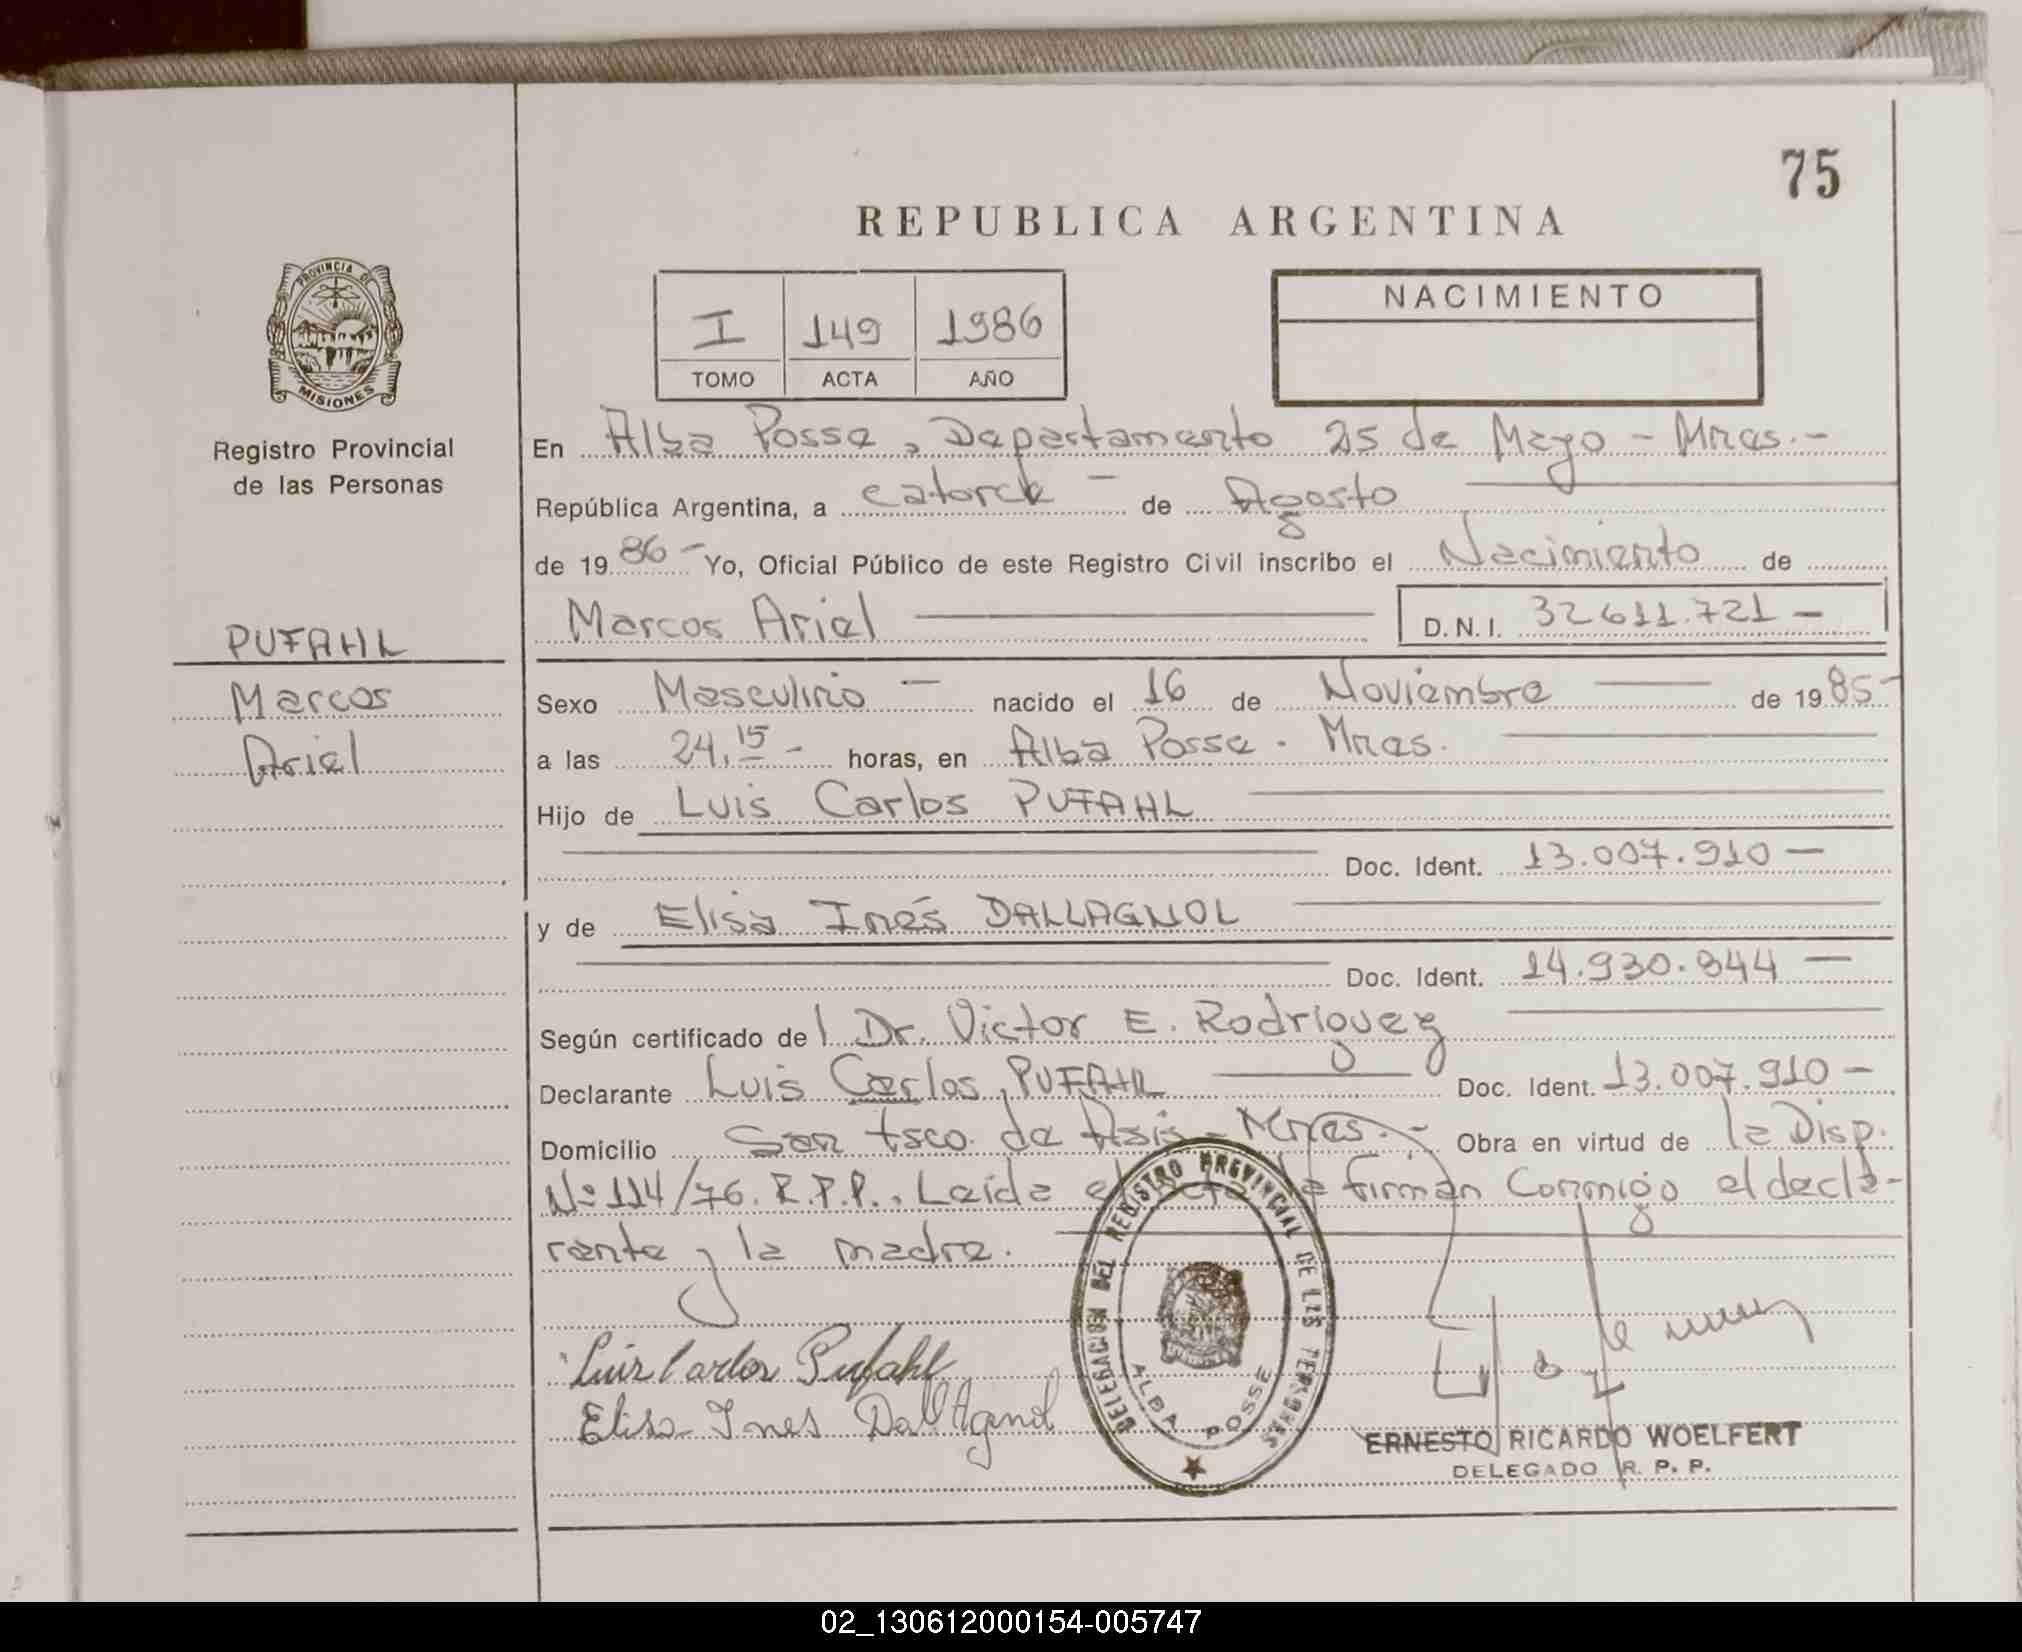 75
REPUBLICA ARGENTINA
PROVINCIA DE
MISIONES
Registro Provincial
de las Personas
I 149 1986
TOMO ACTA AÑO
NACIMIENTO
En Alba Posse, Departamento 25 de Mayo - Mnes.-
República Argentina, a catorce - de Agosto
de 1986- Yo, Oficial Público de este Registro Civil inscribo el Nacimiento de
PUFAHL
Marcos
Ariel
Marcos Ariel D.N.I. 32611.721 -
Sexo Masculino - nacido el 16 de Noviembre de 1985-
a las 24,15 - horas, en Alba Posse - Mnes.
Hijo de Luis Carlos PUFAHL
Doc. Ident. 13.007.910 -
y de Elisa Inés DALLAGNOL
Doc. Ident. 14.930.844 -
Según certificado del Dr. Victor E. Rodriguez
Declarante Luis Carlos PUFAHL Doc. Ident. 13.007.910 -
Domicilio San Fsco. de Asis - Mnes.- Obra en virtud de la Disp.
Nº 114/76. R.P.P., Leída el acta la firman Conmigo el decla-
rante y la madre.
Luis Carlos Pufahl
Elisa Ines DallAgnol
DELEGACION DEL REGISTRO PROVINCIAL DE LAS PERSONAS
ALBA POSSE
ERNESTO RICARDO WOELFERT
DELEGADO R. P. P.
02_130612000154-005747